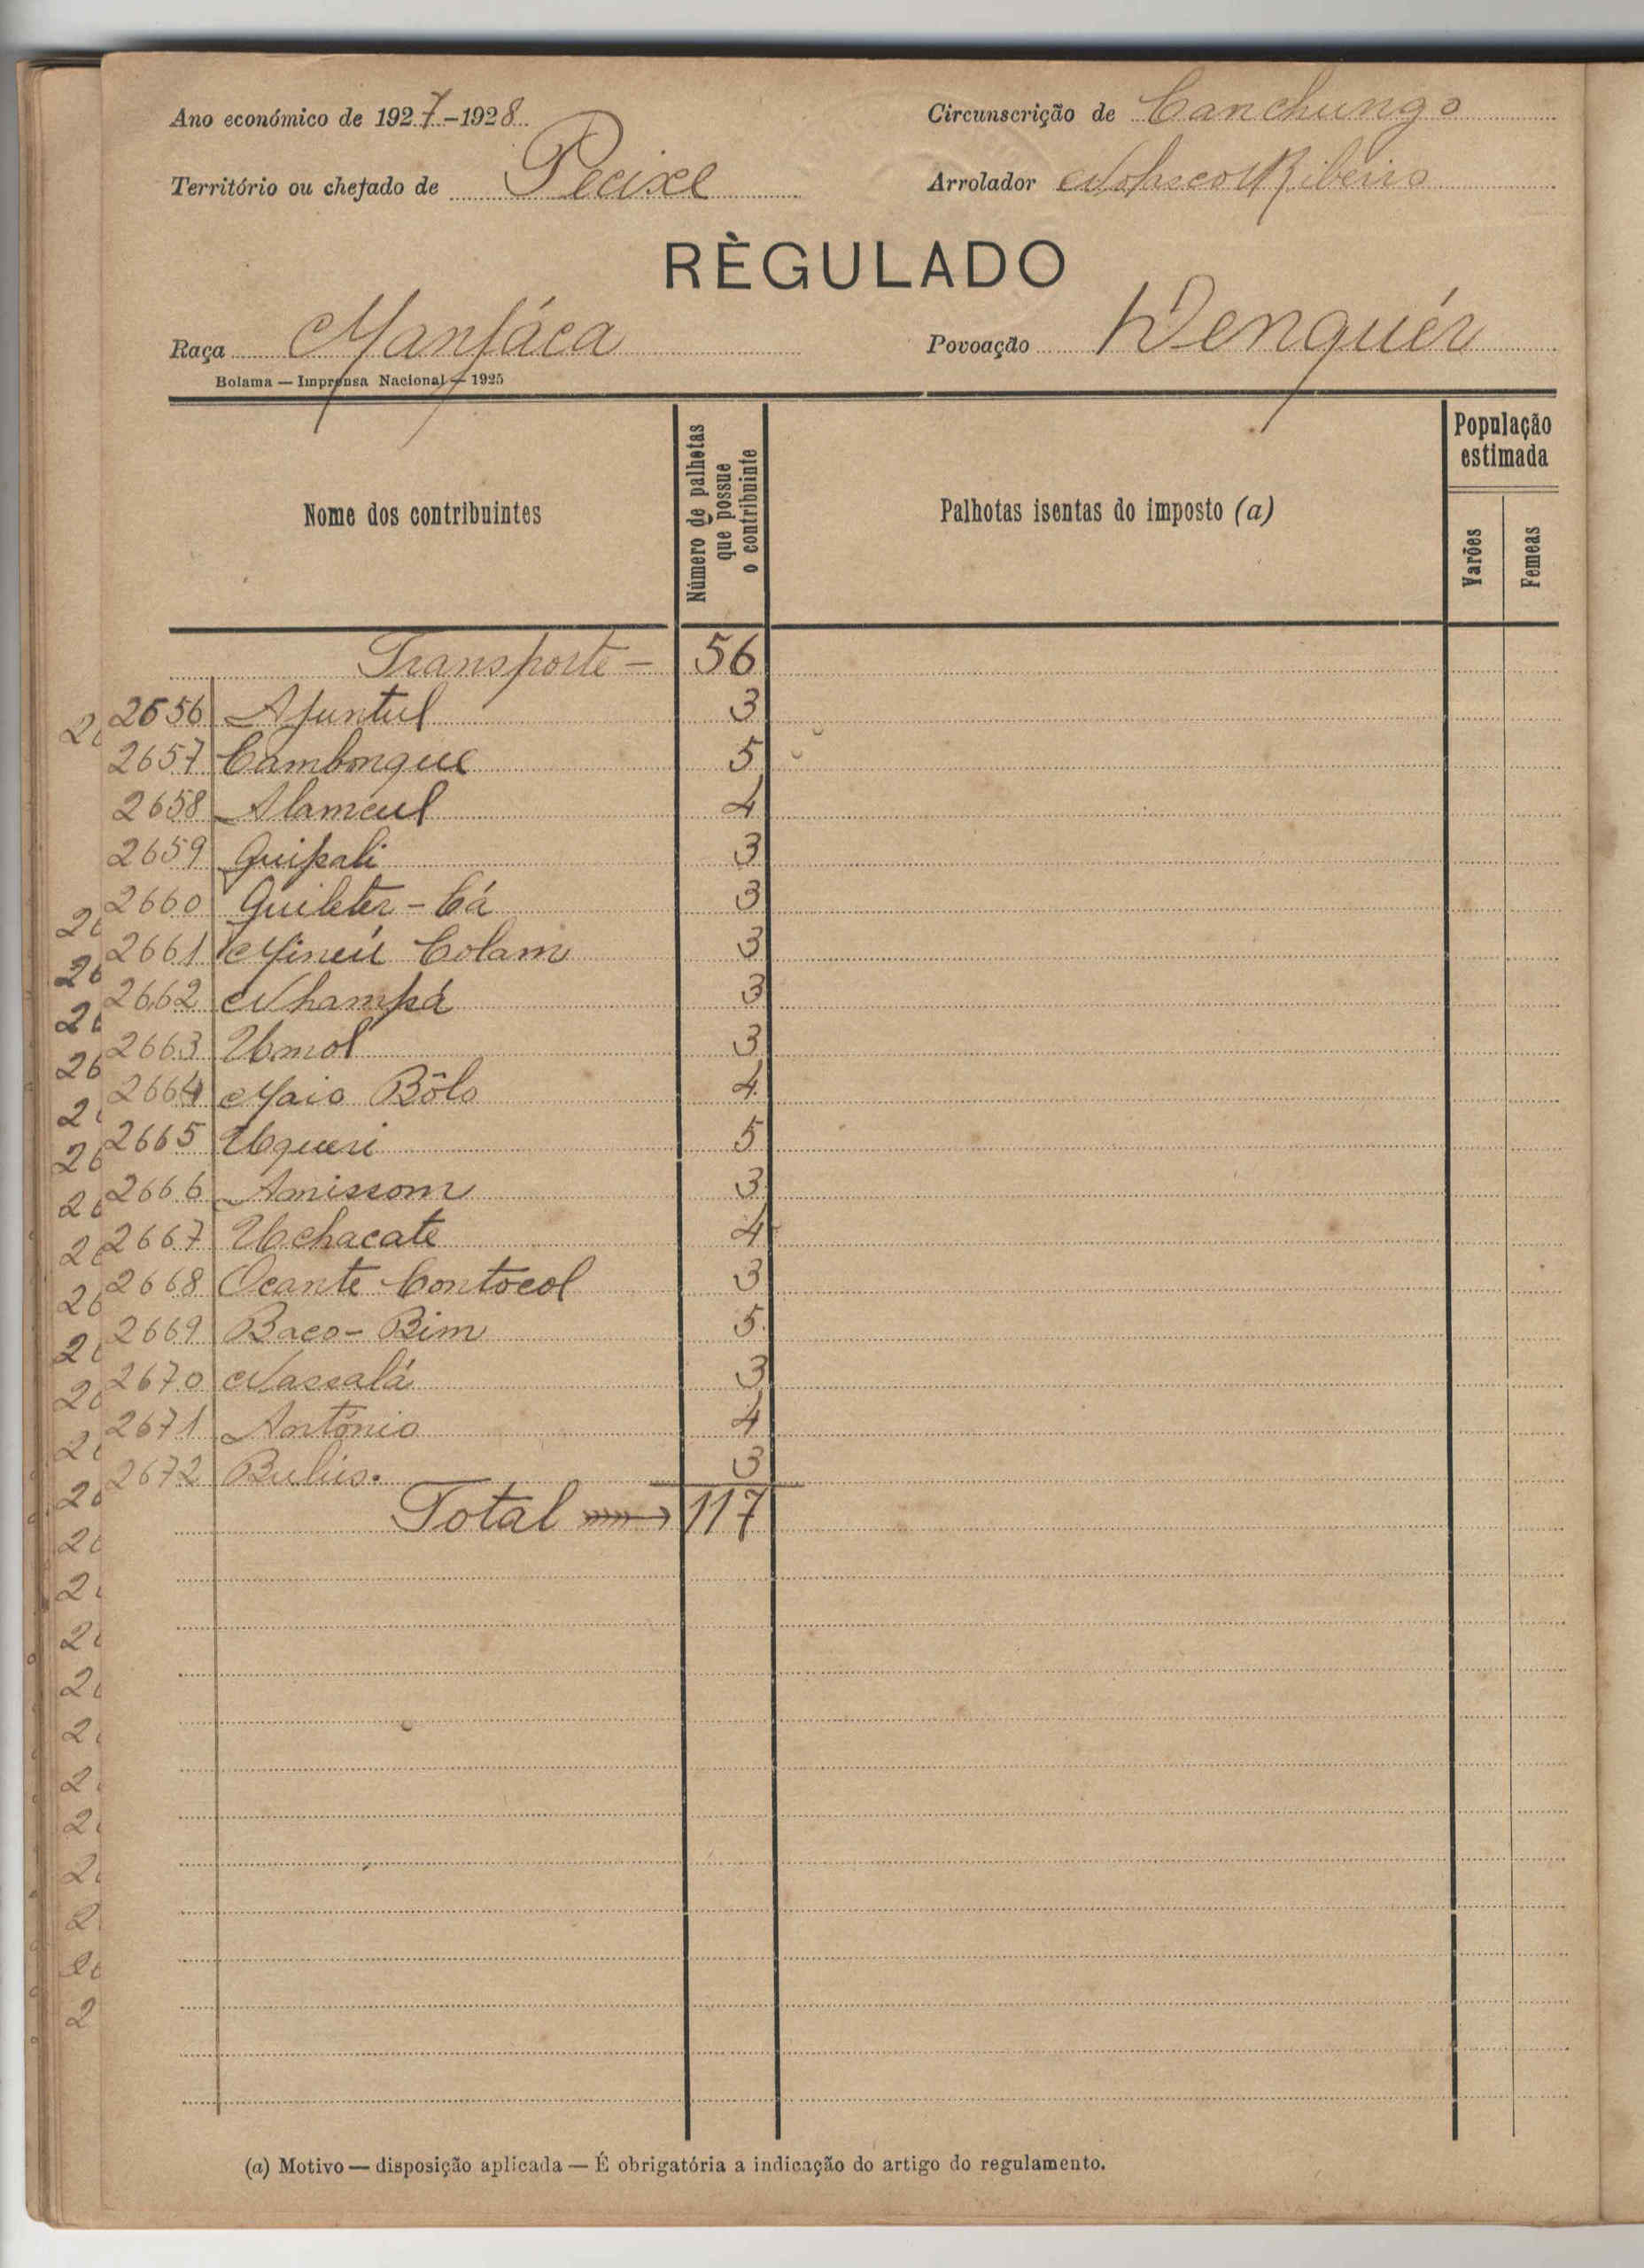 Ano económico de 1927-1928
Circunscrição de Canchungo
Território ou chefado de Pecixe
Arrolador Ribeiro
RÈGULADO
Raça Manjáca
Povoação
Bolama — Imprensa Nacional — 1925
Nome dos contribuintes
Número de palhotas
que possue
o contribuinte
Palhotas isentas do imposto (a)
População
estimada
Varões
Femeas
Transporte - 56
2656 Ajuntul 3
2657 Cambonque 5
2658 Alameul 4
2659 Quipali 3
2660 Quileter - Cá 3
2661 Mineú Colam 3
2662 Nhampá 3
2663 Umol 3
2664 Maio Bôlo 4
2665 Uqueri 5
2666 Anissom 3
2667 Uchacate 4
2668 Ocante Contocol 3
2669 Baco - Bim 5
2670 Nassalá 3
2671 António 4
2672 3
Total 117
(a) Motivo — disposição aplicada — É obrigatória a indicação do artigo do regulamento.